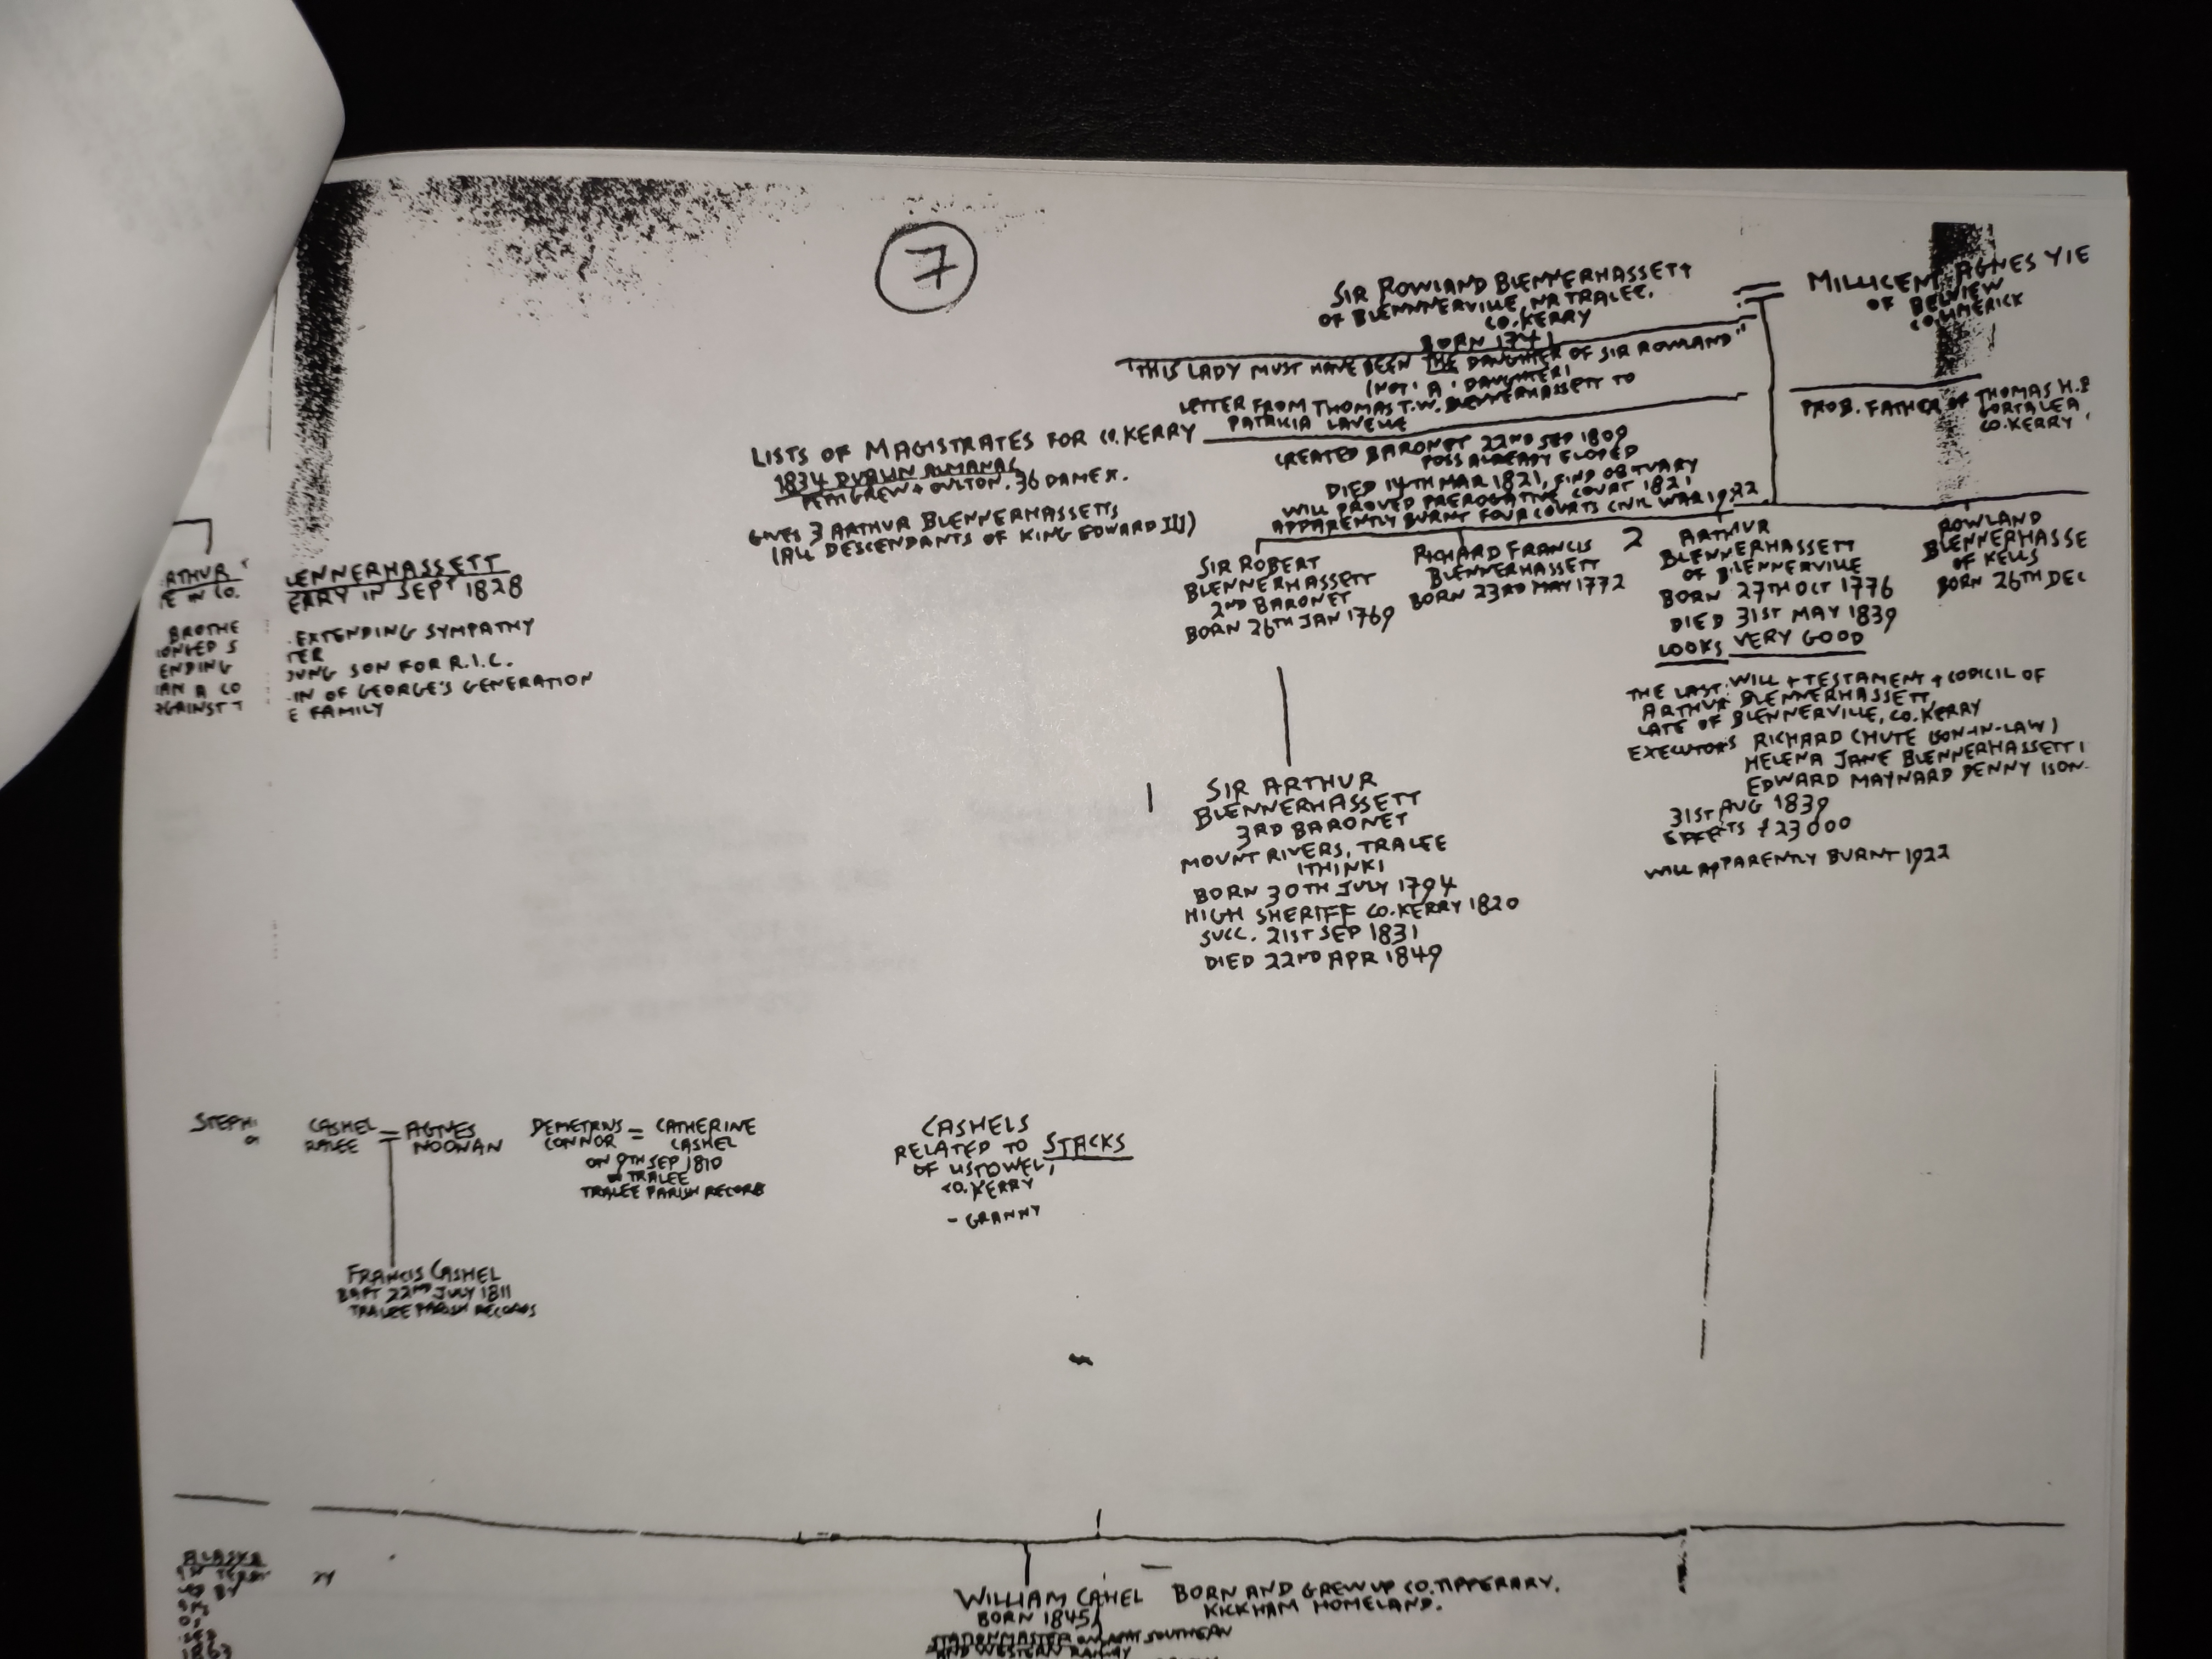 7
SIR ROWLAND BLENNERHASSETT
OF BLENNNERVILLE, NR TRALEE,
CO. KERRY
BORN 1741
MILLICENT AGNES YIE
OF BELVIEW
CO. LIMERICK
"THIS LADY MUST HAVE BEEN THE DAUGHTER OF SIR ROWLAND"
(NOT 'A' DAUGHTER)
LETTER FROM THOMAS T.W. BLENNERHASSETT TO
PATRICIA LAVELLE
PROB. FATHER OF THOMAS H. B
GORTALEA
CO. KERRY
LISTS OF MAGISTRATES FOR CO. KERRY
1834 DUBLIN ALMANAC
PETTIGREW + OULTON. 36 DAME ST.
GIVES 3 ARTHUR BLENNERHASSETTS
(ALL DESCENDANTS OF KING EDWARD III)
CREATED BARONET 22ND SEP 1809
POSS ALREADY ELOPED
DIED 14TH MAR 1821, FIND OBITUARY
WILL PROVED PREROGATIVE COURT 1821
APPARENTLY BURNT FOUR COURTS CIVIL WAR 1922
RTHUR
E IN CO.
BROTHE
IONGED S
ENDING
IAN A CO
AGAINST T
LENNERHASSETT
ERRY IN SEPT 1828
EXTENDING SYMPATHY
TER
OUNG SON FOR R.I.C.
IN OF GEORGE'S GENERATION
E FAMILY
SIR ROBERT
BLENNERHASSETT
2ND BARONET
BORN 26TH JAN 1769
RICHARD FRANCIS
BLENNERHASSETT
BORN 23RD MAY 1772
2
ARTHUR
BLENNERHASSETT
OF BLENNERVILLE
BORN 27TH OCT 1776
DIED 31ST MAY 1839
LOOKS VERY GOOD
ROWLAND
BLENNERHASSE
OF KELLS
BORN 26TH DEC
THE LAST WILL + TESTAMENT + CODICIL OF
ARTHUR BLENNERHASSETT,
LATE OF BLENNERVILLE, CO. KERRY
EXECUTORS RICHARD CHUTE (SON-IN-LAW)
HELENA JANE BLENNERHASSETT (
EDWARD MAYNARD DENNY (SON-
31ST AUG 1839
EFFECTS £23000
WILL APPARENTLY BURNT 1922
1
SIR ARTHUR
BLENNERHASSETT
3RD BARONET
MOUNT RIVERS, TRALEE
(THINK)
BORN 30TH JULY 1794
HIGH SHERIFF CO. KERRY 1820
SUCC. 21ST SEP 1831
DIED 22ND APR 1849
STEPH
CASHEL = AGNES
RALEE NOONAN
DEMETRIUS = CATHERINE
CONNOR CASHEL
ON 9TH SEP 1810
TRALEE
TRALEE PARISH RECORDS
CASHELS
RELATED TO STACKS
OF LISTOWEL,
CO. KERRY
- GRANNY
FRANCIS CASHEL
BAPT 22ND JULY 1811
TRALEE PARISH RECORDS
ALASKA
1863
WILLIAM CAHEL BORN AND GREW UP CO. TIPPERARY.
BORN 1845 KICKHAM HOMELAND.
STATIONMASTER ON GREAT SOUTHERN
AND WESTERN RAILWAY